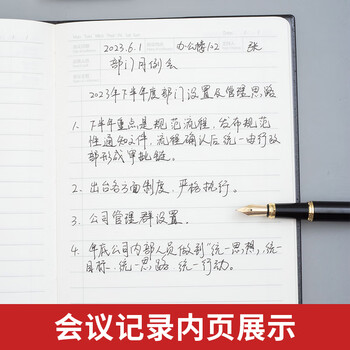 2023.6.1 办公楼102 张
部门月例会
2023年下半年度部门设置及管理思路
1. 下半年重点是规范流程，发布规范
性通知文件，流程确认后统一由行政
部形成审批链。
2. 出台各方面制度，严格执行。
3. 公司管理群设置。
4. 年底公司内部人员做到“统一思想，统一
目标，统一思路 统一行动。
会议记录内页展示